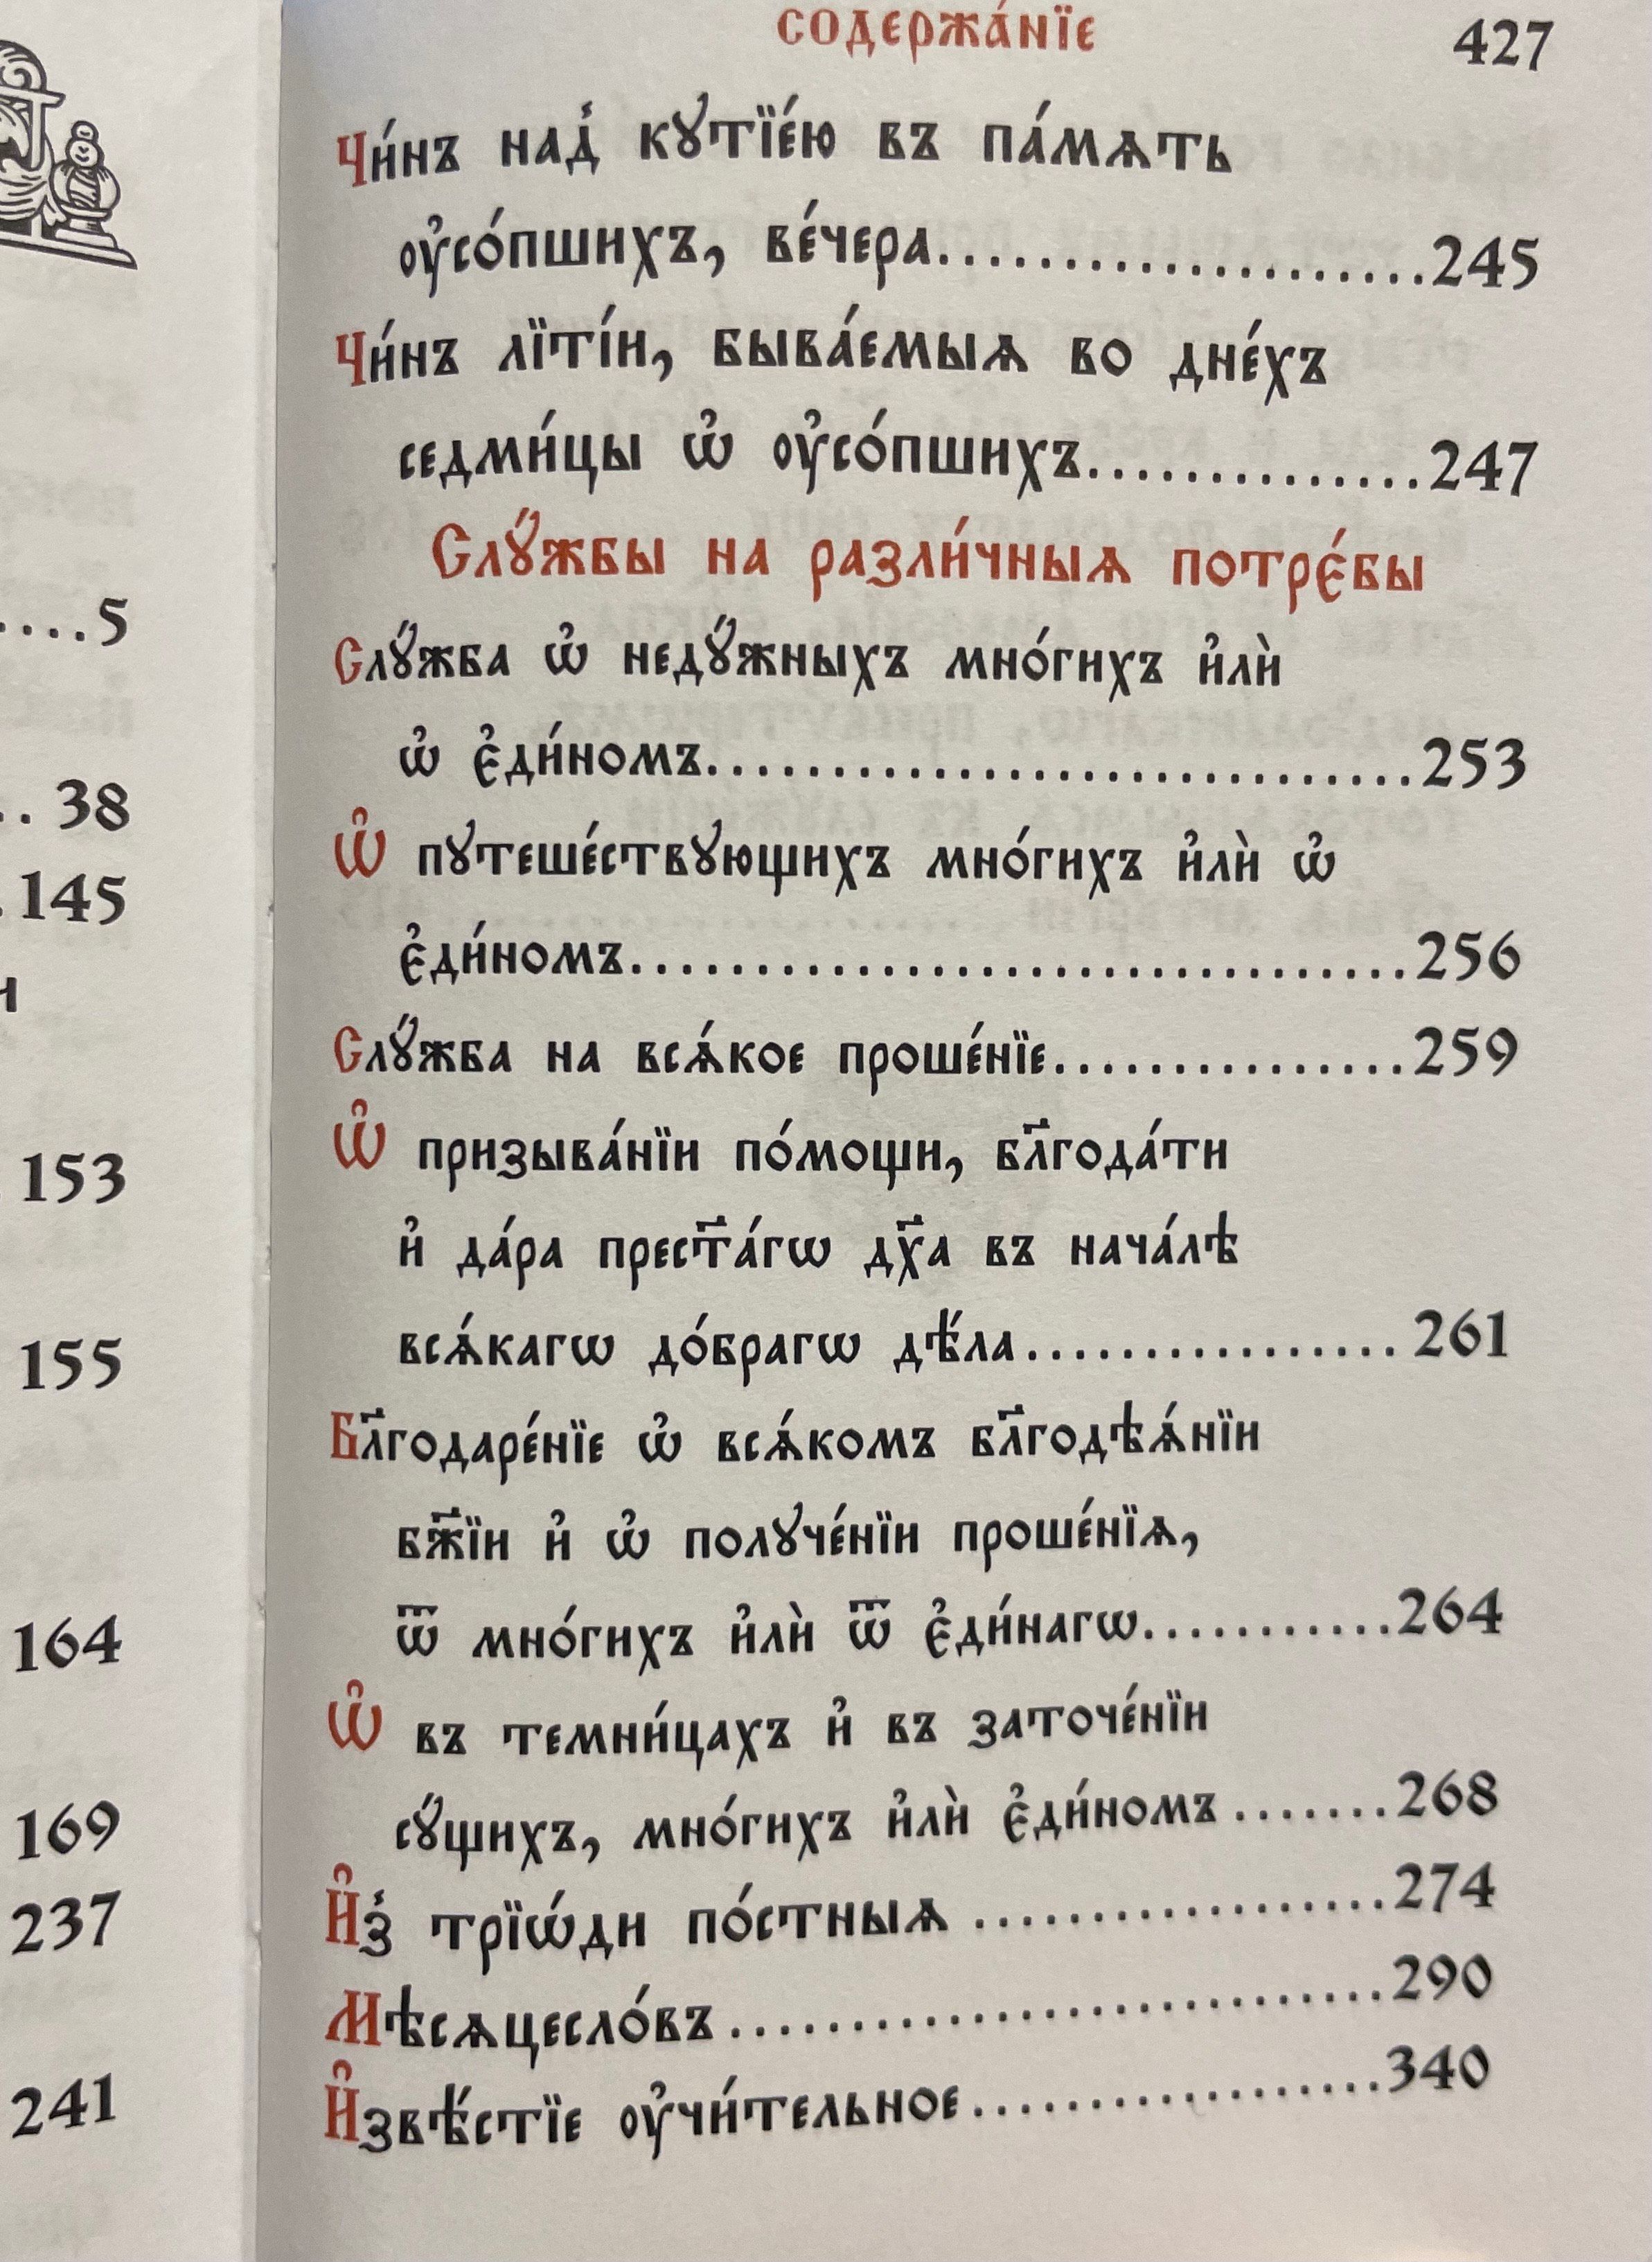 ....5
.. 38
.145
и
153
155
164
169
237
241
содержа́нїе 427
Чи́нъ над̾ кꙋтїе́ю въ па́мѧть
ᲂу҆со́пшихъ, ве́чера....................245
Чи́нъ лїті́и, быва́емыѧ во дне́хъ
седми́цы ѡ҆ ᲂу҆со́пшихъ..............247
Слꙋ́жбы на разли́чныѧ потрє́бы
Слꙋ́жба ѡ҆ недꙋ́жныхъ мно́гихъ и҆лѝ
ѡ҆ є҆ди́номъ..............................253
Ѡ҆ пꙋтеше́ствꙋющихъ мно́гихъ и҆лѝ ѡ҆
є҆ди́номъ................................256
Слꙋ́жба на всѧ́кое проше́нїе...............259
Ѡ҆ призыва́нїи по́мощи, бл҃года́ти
и҆ да́ра прест҃а́гѡ дх҃а въ нача́лѣ
всѧ́кагѡ до́брагѡ дѣ́ла................ 261
Бл҃годаре́нїе ѡ҆ всѧ́комъ бл҃годѣѧ́нїи
бж҃їи и҆ ѡ҆ полꙋче́нїи проше́нїѧ,
ѿ мно́гихъ и҆лѝ ѿ є҆ди́нагѡ...........264
Ѡ҆ въ темни́цахъ и҆ въ заточе́нїи
сꙋ́щихъ, мно́гихъ и҆лѝ є҆ди́номъ.......268
И҆з̾ трїѡ́ди по́стныѧ ..................274
Мѣсѧцесло́въ............................290
И҆звѣ́стїе ᲂу҆чи́тельное..................340